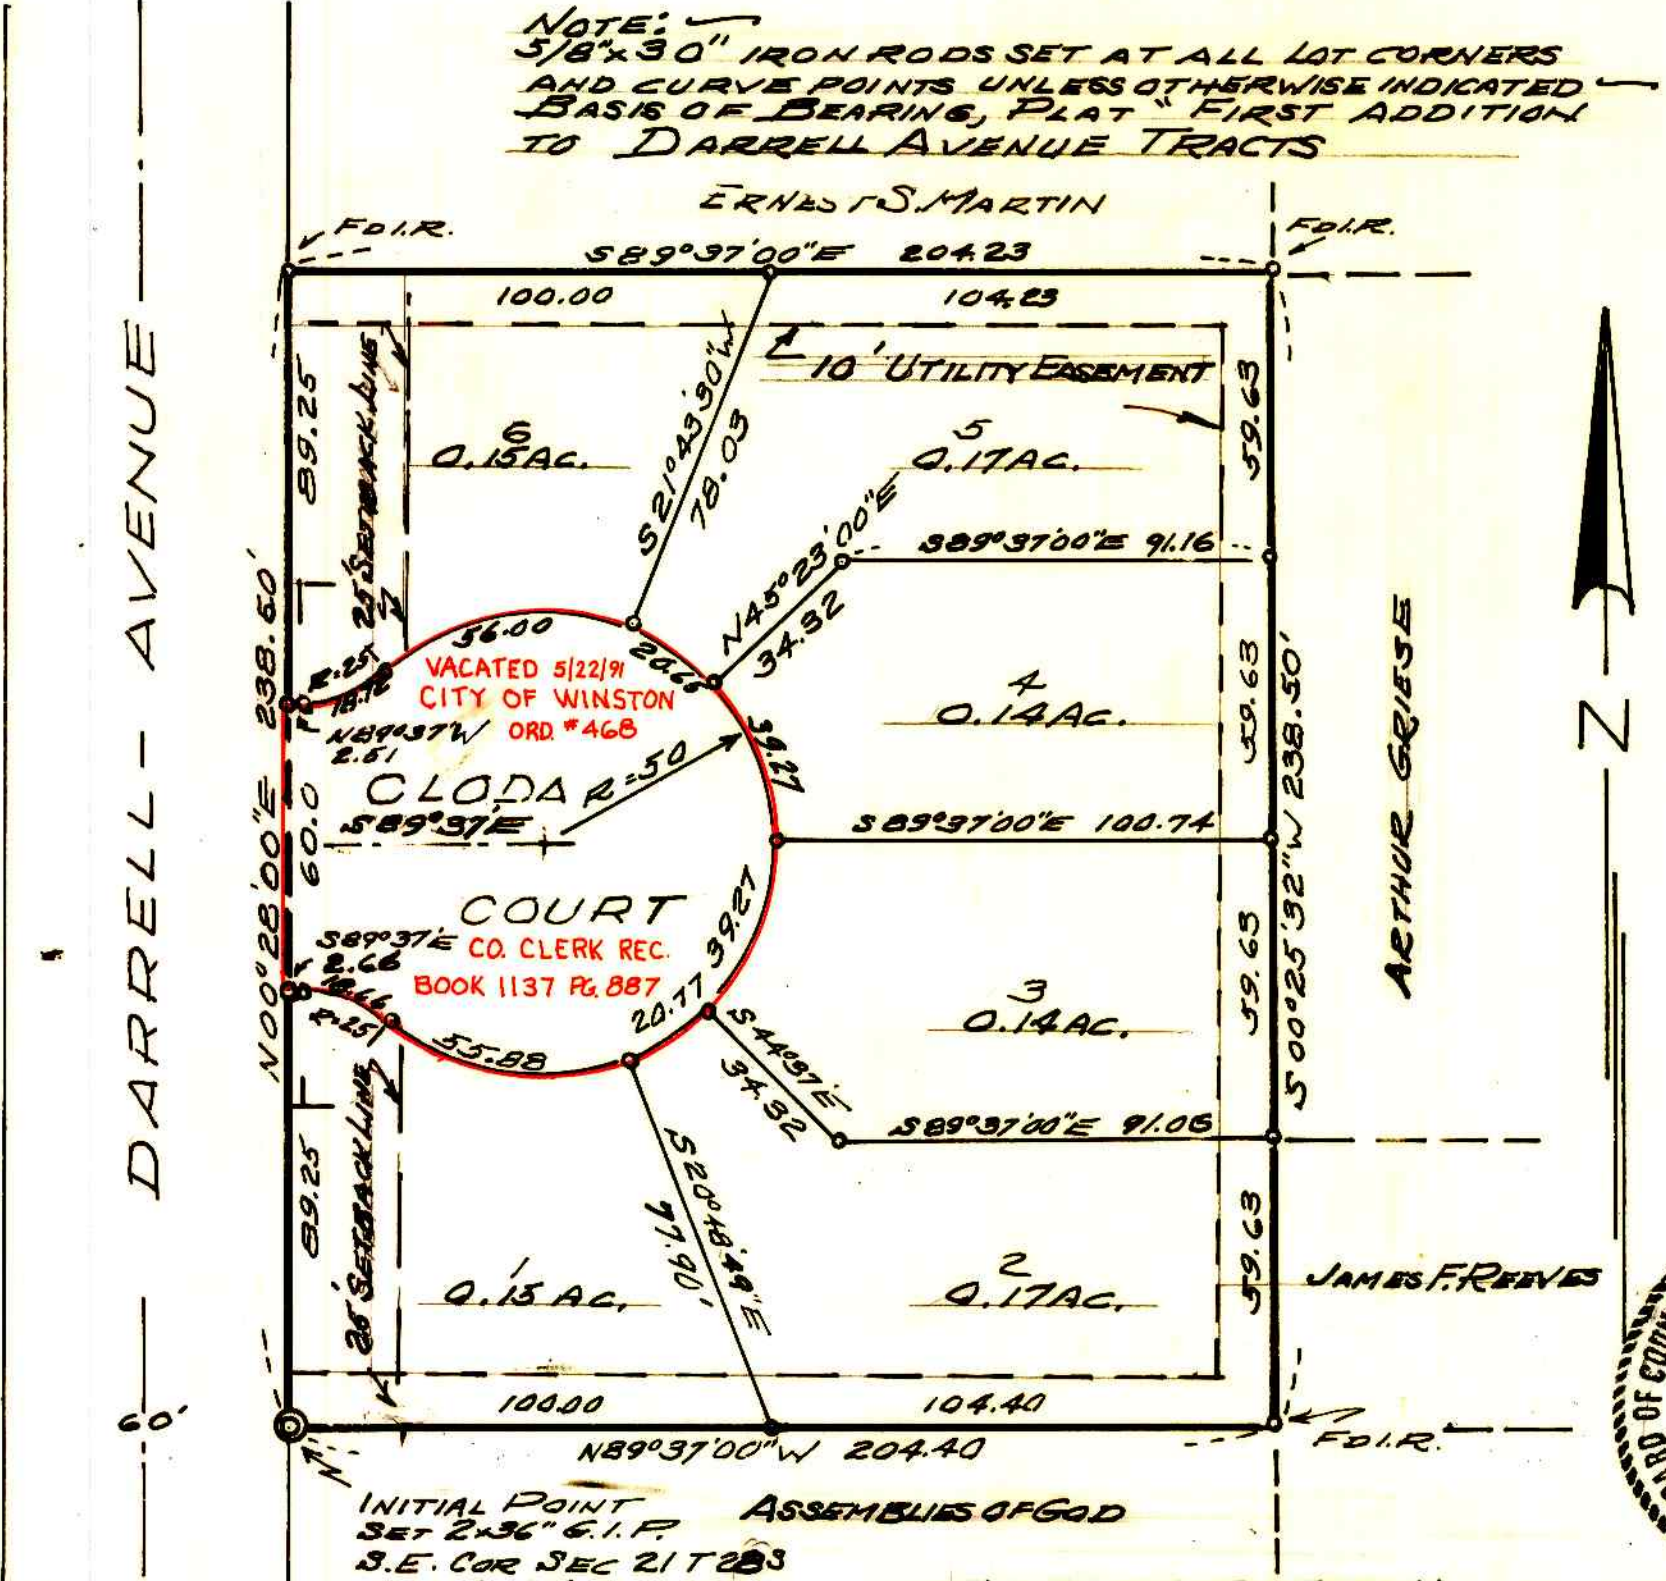 NOTE:
5/8"x30" IRON RODS SET AT ALL LOT CORNERS
AND CURVE POINTS UNLESS OTHERWISE INDICATED
BASIS OF BEARING, PLAT "FIRST ADDITION
TO DARRELL AVENUE TRACTS
ERNEST S. MARTIN
FD I.R.
FD I.R.
S89°37'00"E 204.23
100.00
104.23
10' UTILITY EASEMENT
DARRELL - AVENUE
89.25
25' SETBACK LINE
6
0.15 AC.
S21°43'30"W
78.03
5
0.17 AC.
59.63
N45°23'00"E
34.32
S89°37'00"E 91.16
N00°28'00"E 238.50'
56.00
R=25
18.72
N89°37'W
2.61
VACATED 5/22/91
CITY OF WINSTON
ORD. #468
20.66
39.27
4
0.14 AC.
59.63
S00°25'32"W 238.50'
ARTHUR GRIESE
N
CLODA
R=50
S89°37'E
60.0
S89°37'00"E 100.74
COURT
CO. CLERK REC.
BOOK 1137 PG. 887
S89°37'E
2.66
18.66
R=25
39.27
20.77
55.88
3
0.14 AC.
59.63
S44°37'E
34.32
S89°37'00"E 91.06
89.25
25' SETBACK LINE
1
0.15 AC.
S20°48'49"E
77.90'
2
0.17 AC.
59.63
JAMES F. REEVES
60'
100.00
104.40
N89°37'00"W 204.40
FD I.R.
INITIAL POINT
SET 2x36" G.I.P.
S.E. COR SEC 21 T28S
ASSEMBLIES OF GOD